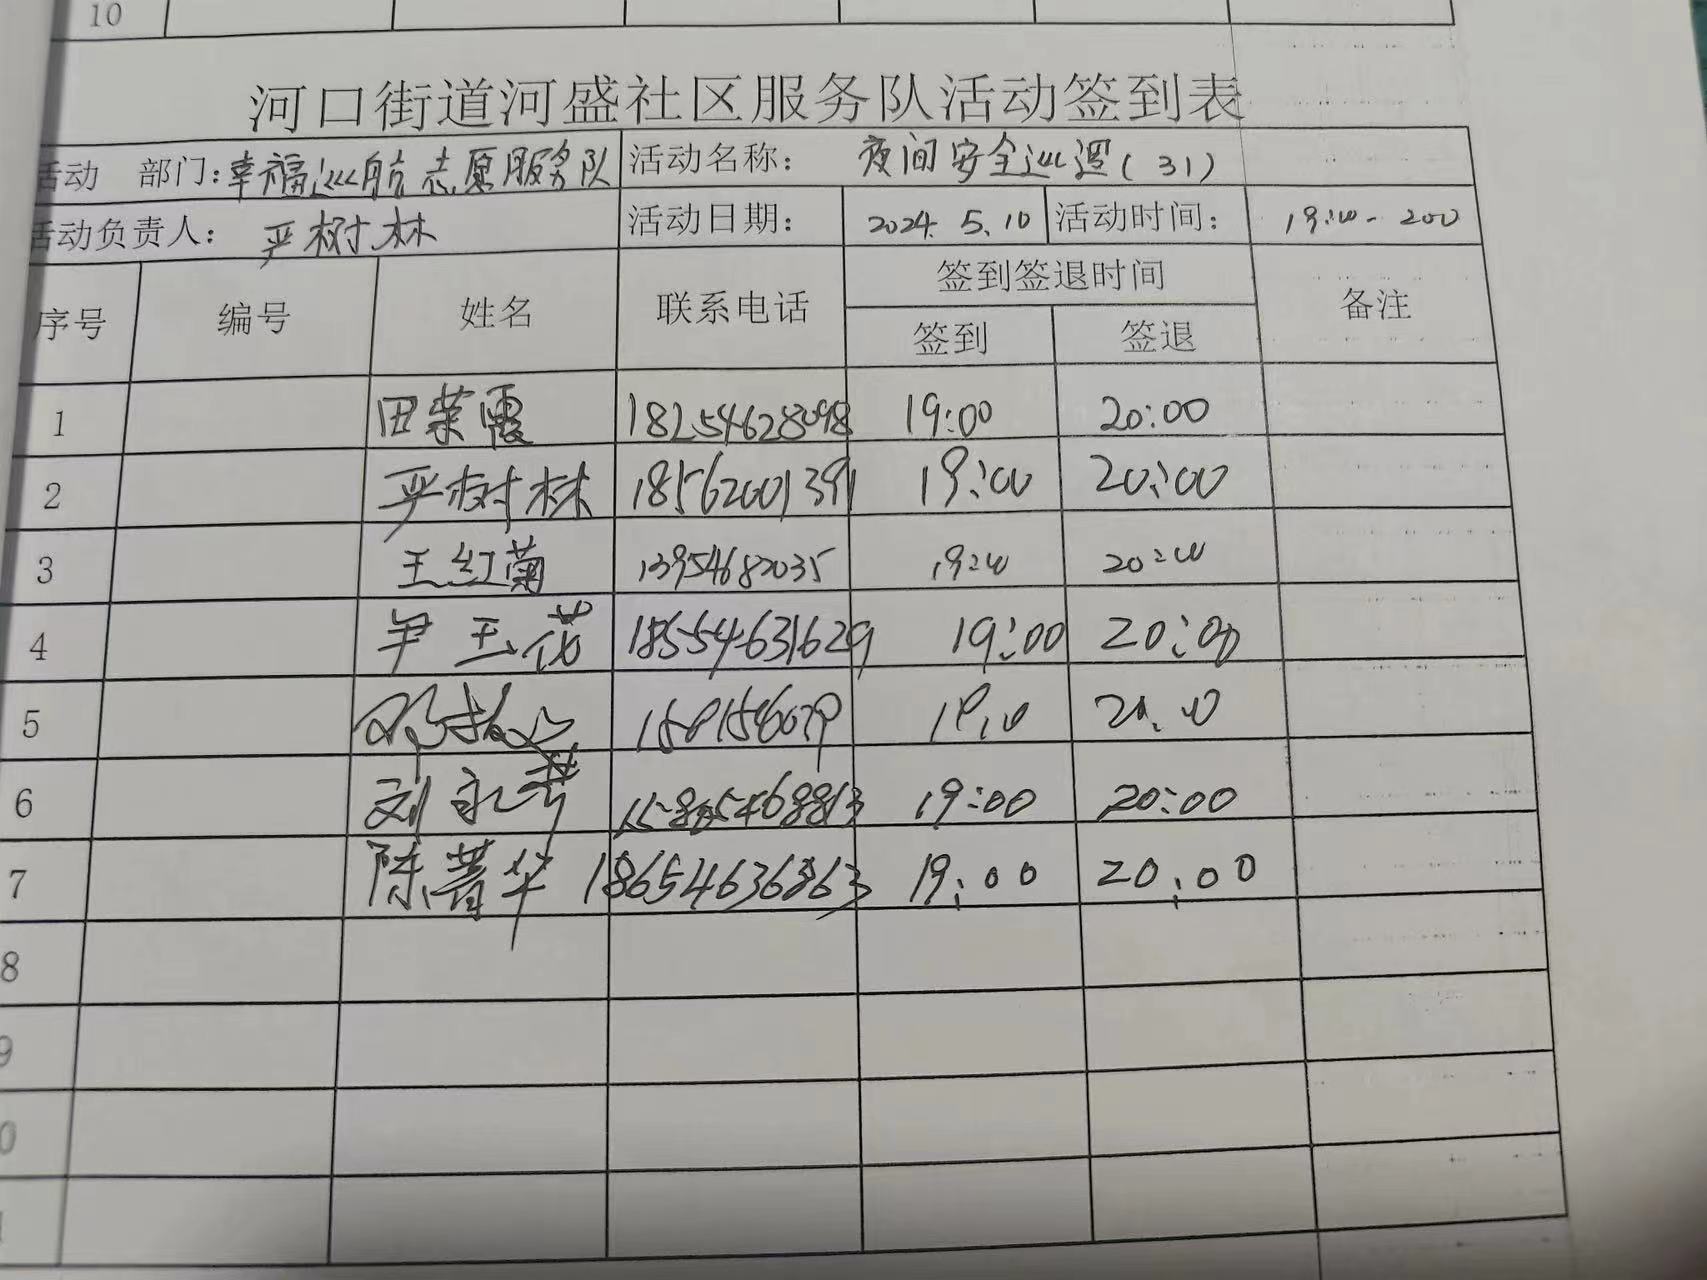 10
河口街道河盛社区服务队活动签到表
活动 部门：幸福巡航志愿服务队 活动名称： 夜间安全巡逻(31)
活动负责人： 严树林 活动日期： 2024.5.10 活动时间： 19:00-200
序号 编号 姓名 联系电话 签到签退时间 备注
签到 签退
1 田荣霞 18254628098 19:00 20:00
2 严树林 18562001391 19:00 20:00
3 王红菊 13954682035 19:00 20:00
4 尹玉花 18554631629 19:00 20:00
5
6 刘永芳 19:00 20:00
7 陈菁华 18654636863 19:00 20:00
8
9
0